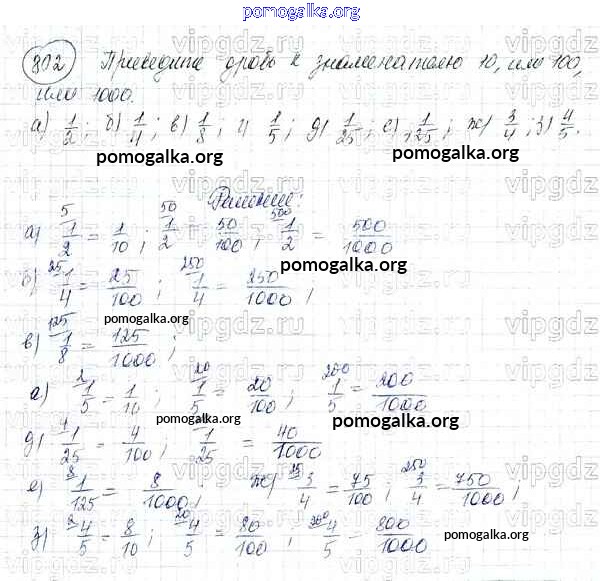 pomogalka.org
802 Приведите дробь к знаменателю 10, или 100,
или 1000.
а) 1/2; б) 1/4; в) 1/8; г) 1/5; д) 1/25; е) 1/125; ж) 3/4; з) 4/5.
pomogalka.org pomogalka.org
Решение:
а) 5 1/2 = 1/10; 50 1/2 = 50/100; 500 1/2 = 500/1000
pomogalka.org
б) 25 1/4 = 25/100; 250 1/4 = 250/1000;
в) 125 1/8 = 125/1000;
pomogalka.org
г) 2 1/5 = 1/10; 20 1/5 = 20/100; 200 1/5 = 200/1000
pomogalka.org pomogalka.org
д) 4 1/25 = 4/100; 1/25 = 40/1000
е) 8 1/125 = 8/1000; ж) 25 3/4 = 75/100; 250 3/4 = 750/1000;
з) 2 4/5 = 8/10; 20 4/5 = 80/100; 200 4/5 = 800/1000
pomogalka.org
vipgdz.ru